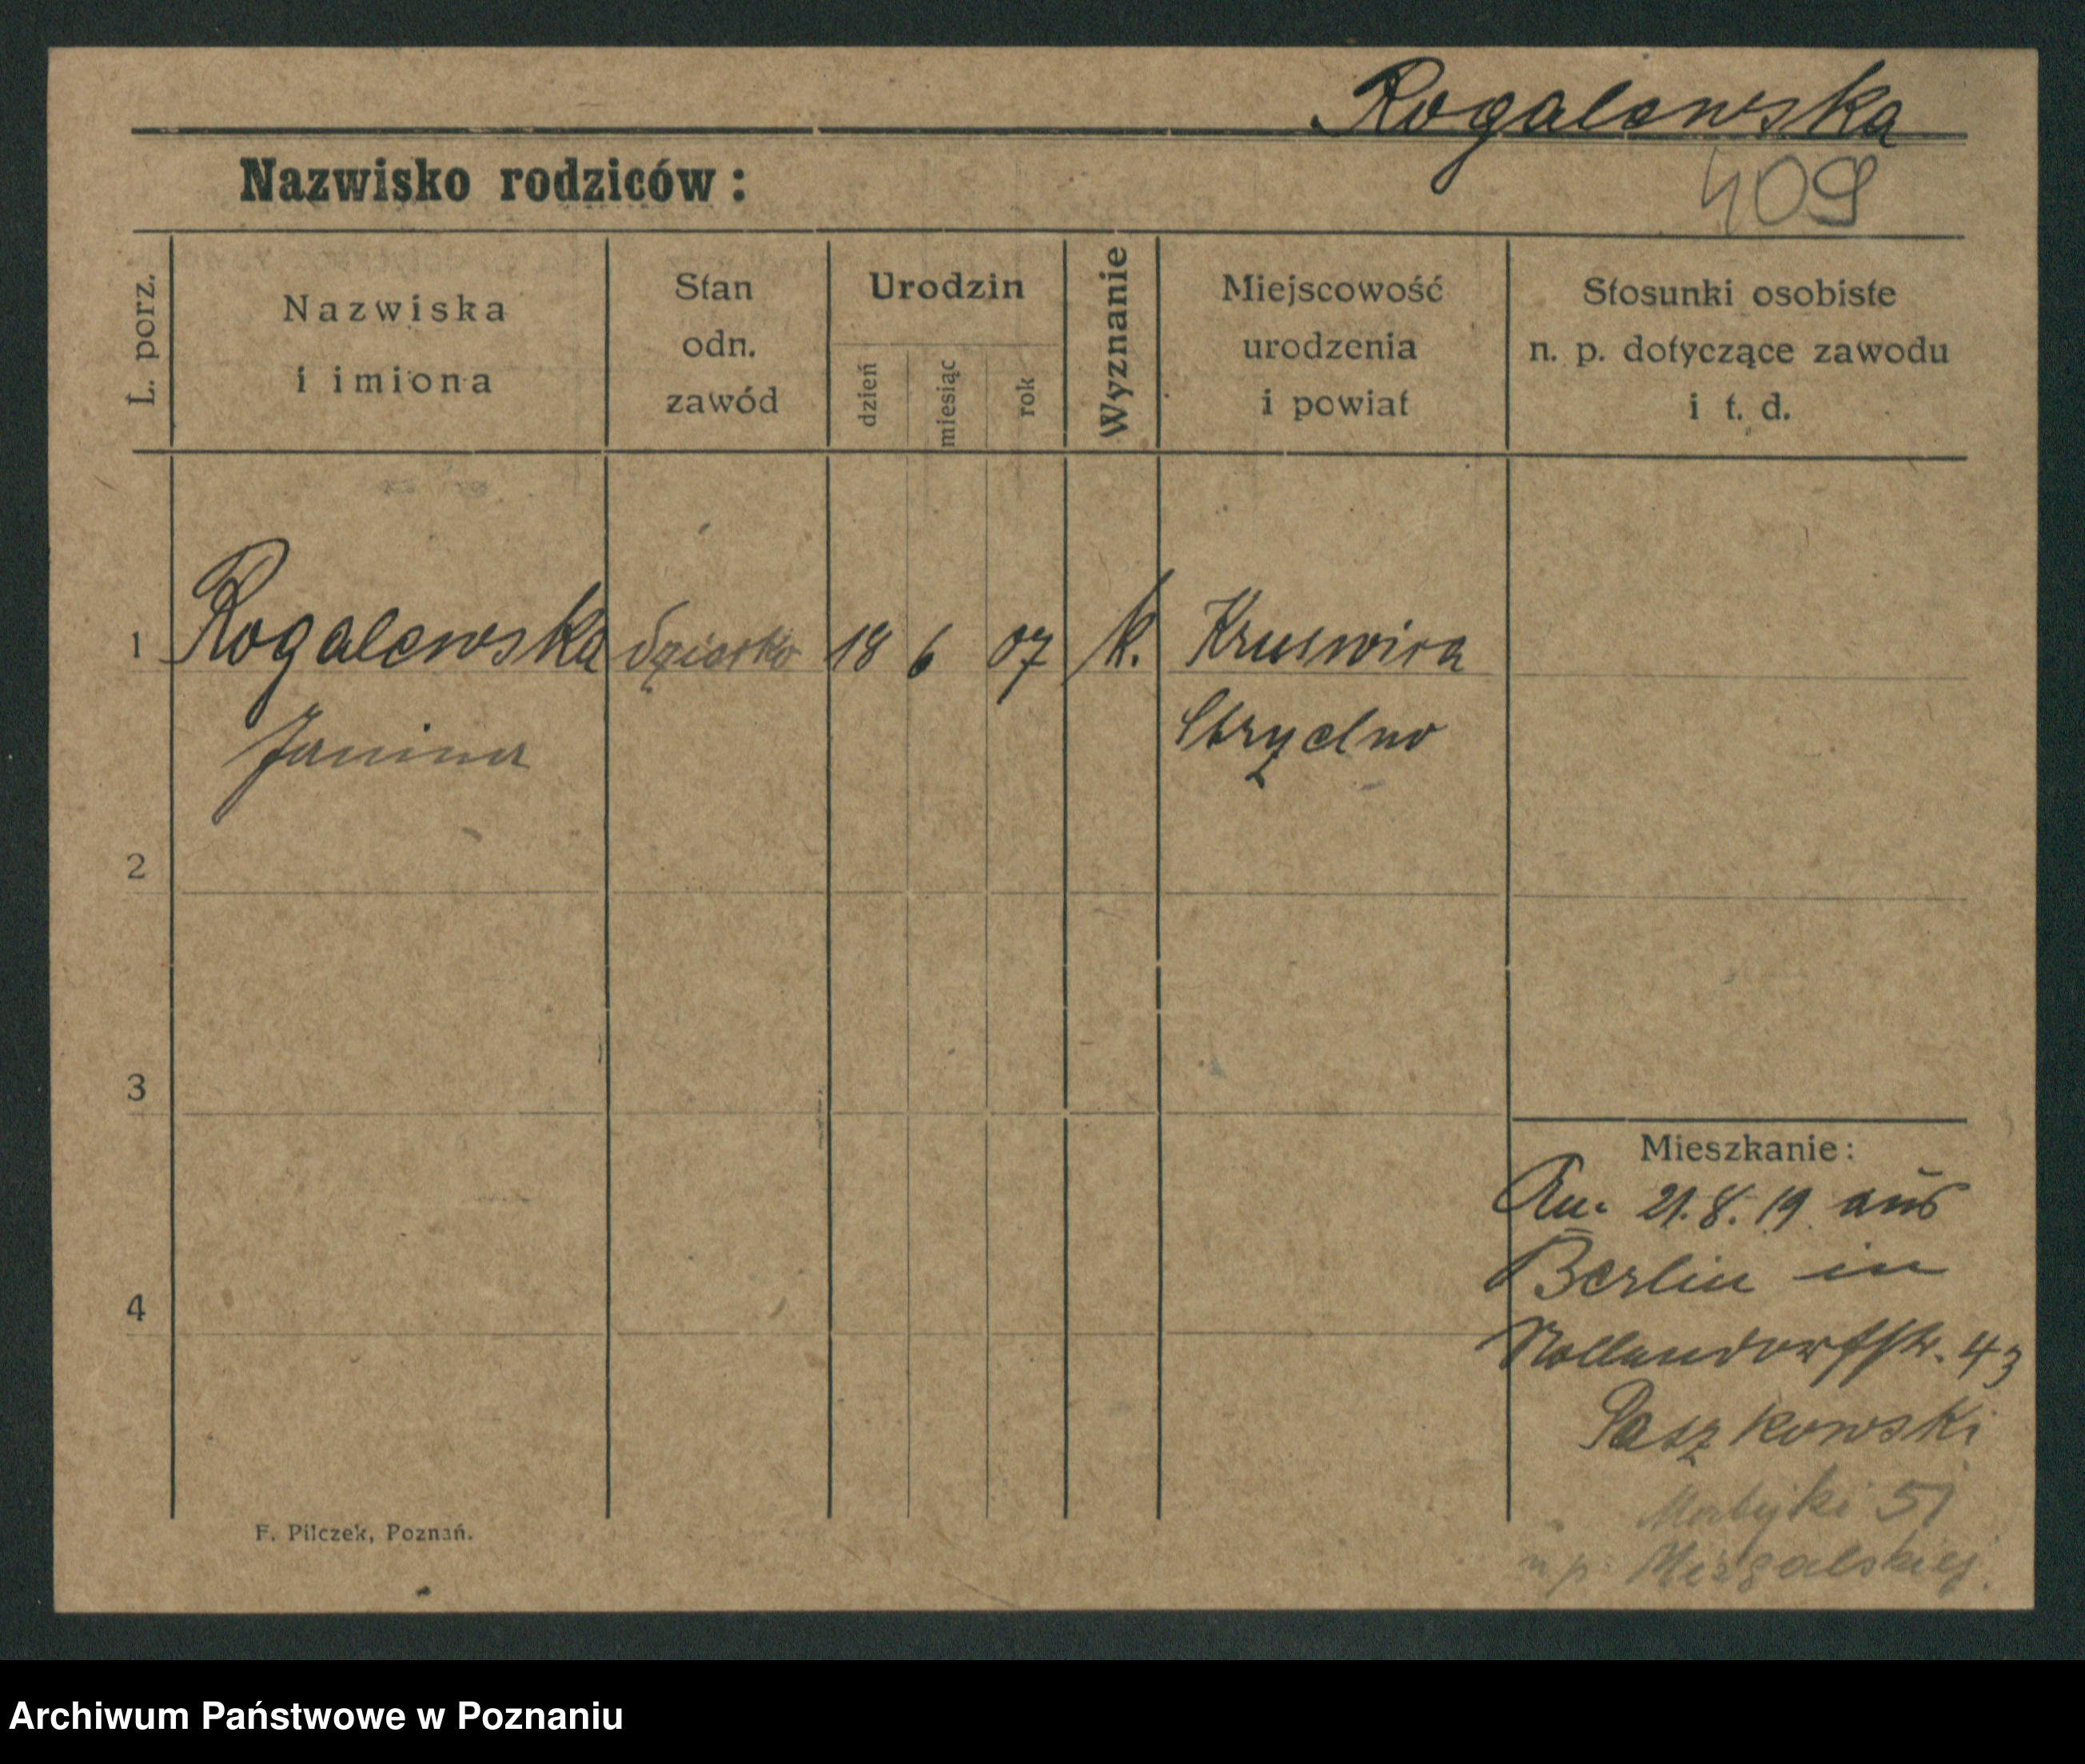 Rogalewska
409
Nazwisko rodziców:
L. porz.
Nazwiska
i imiona
Stan
odn.
zawód
Urodzin
dzień
miesiąc
rok
Wyznanie
Miejscowość
urodzenia
i powiat
Stosunki osobiste
n. p. dotyczące zawodu
i t. d.
1 Rogalewska dziecko 18 6 07 k. Kruswica
Janina Strzelno
2
3
4
Mieszkanie:
An. 21.8.19 aus
Berlin in
Nollendorfstr. 43
Paszkowski
Matejki 51
u p.
F. Pilczek, Poznań.
Archiwum Państwowe w Poznaniu